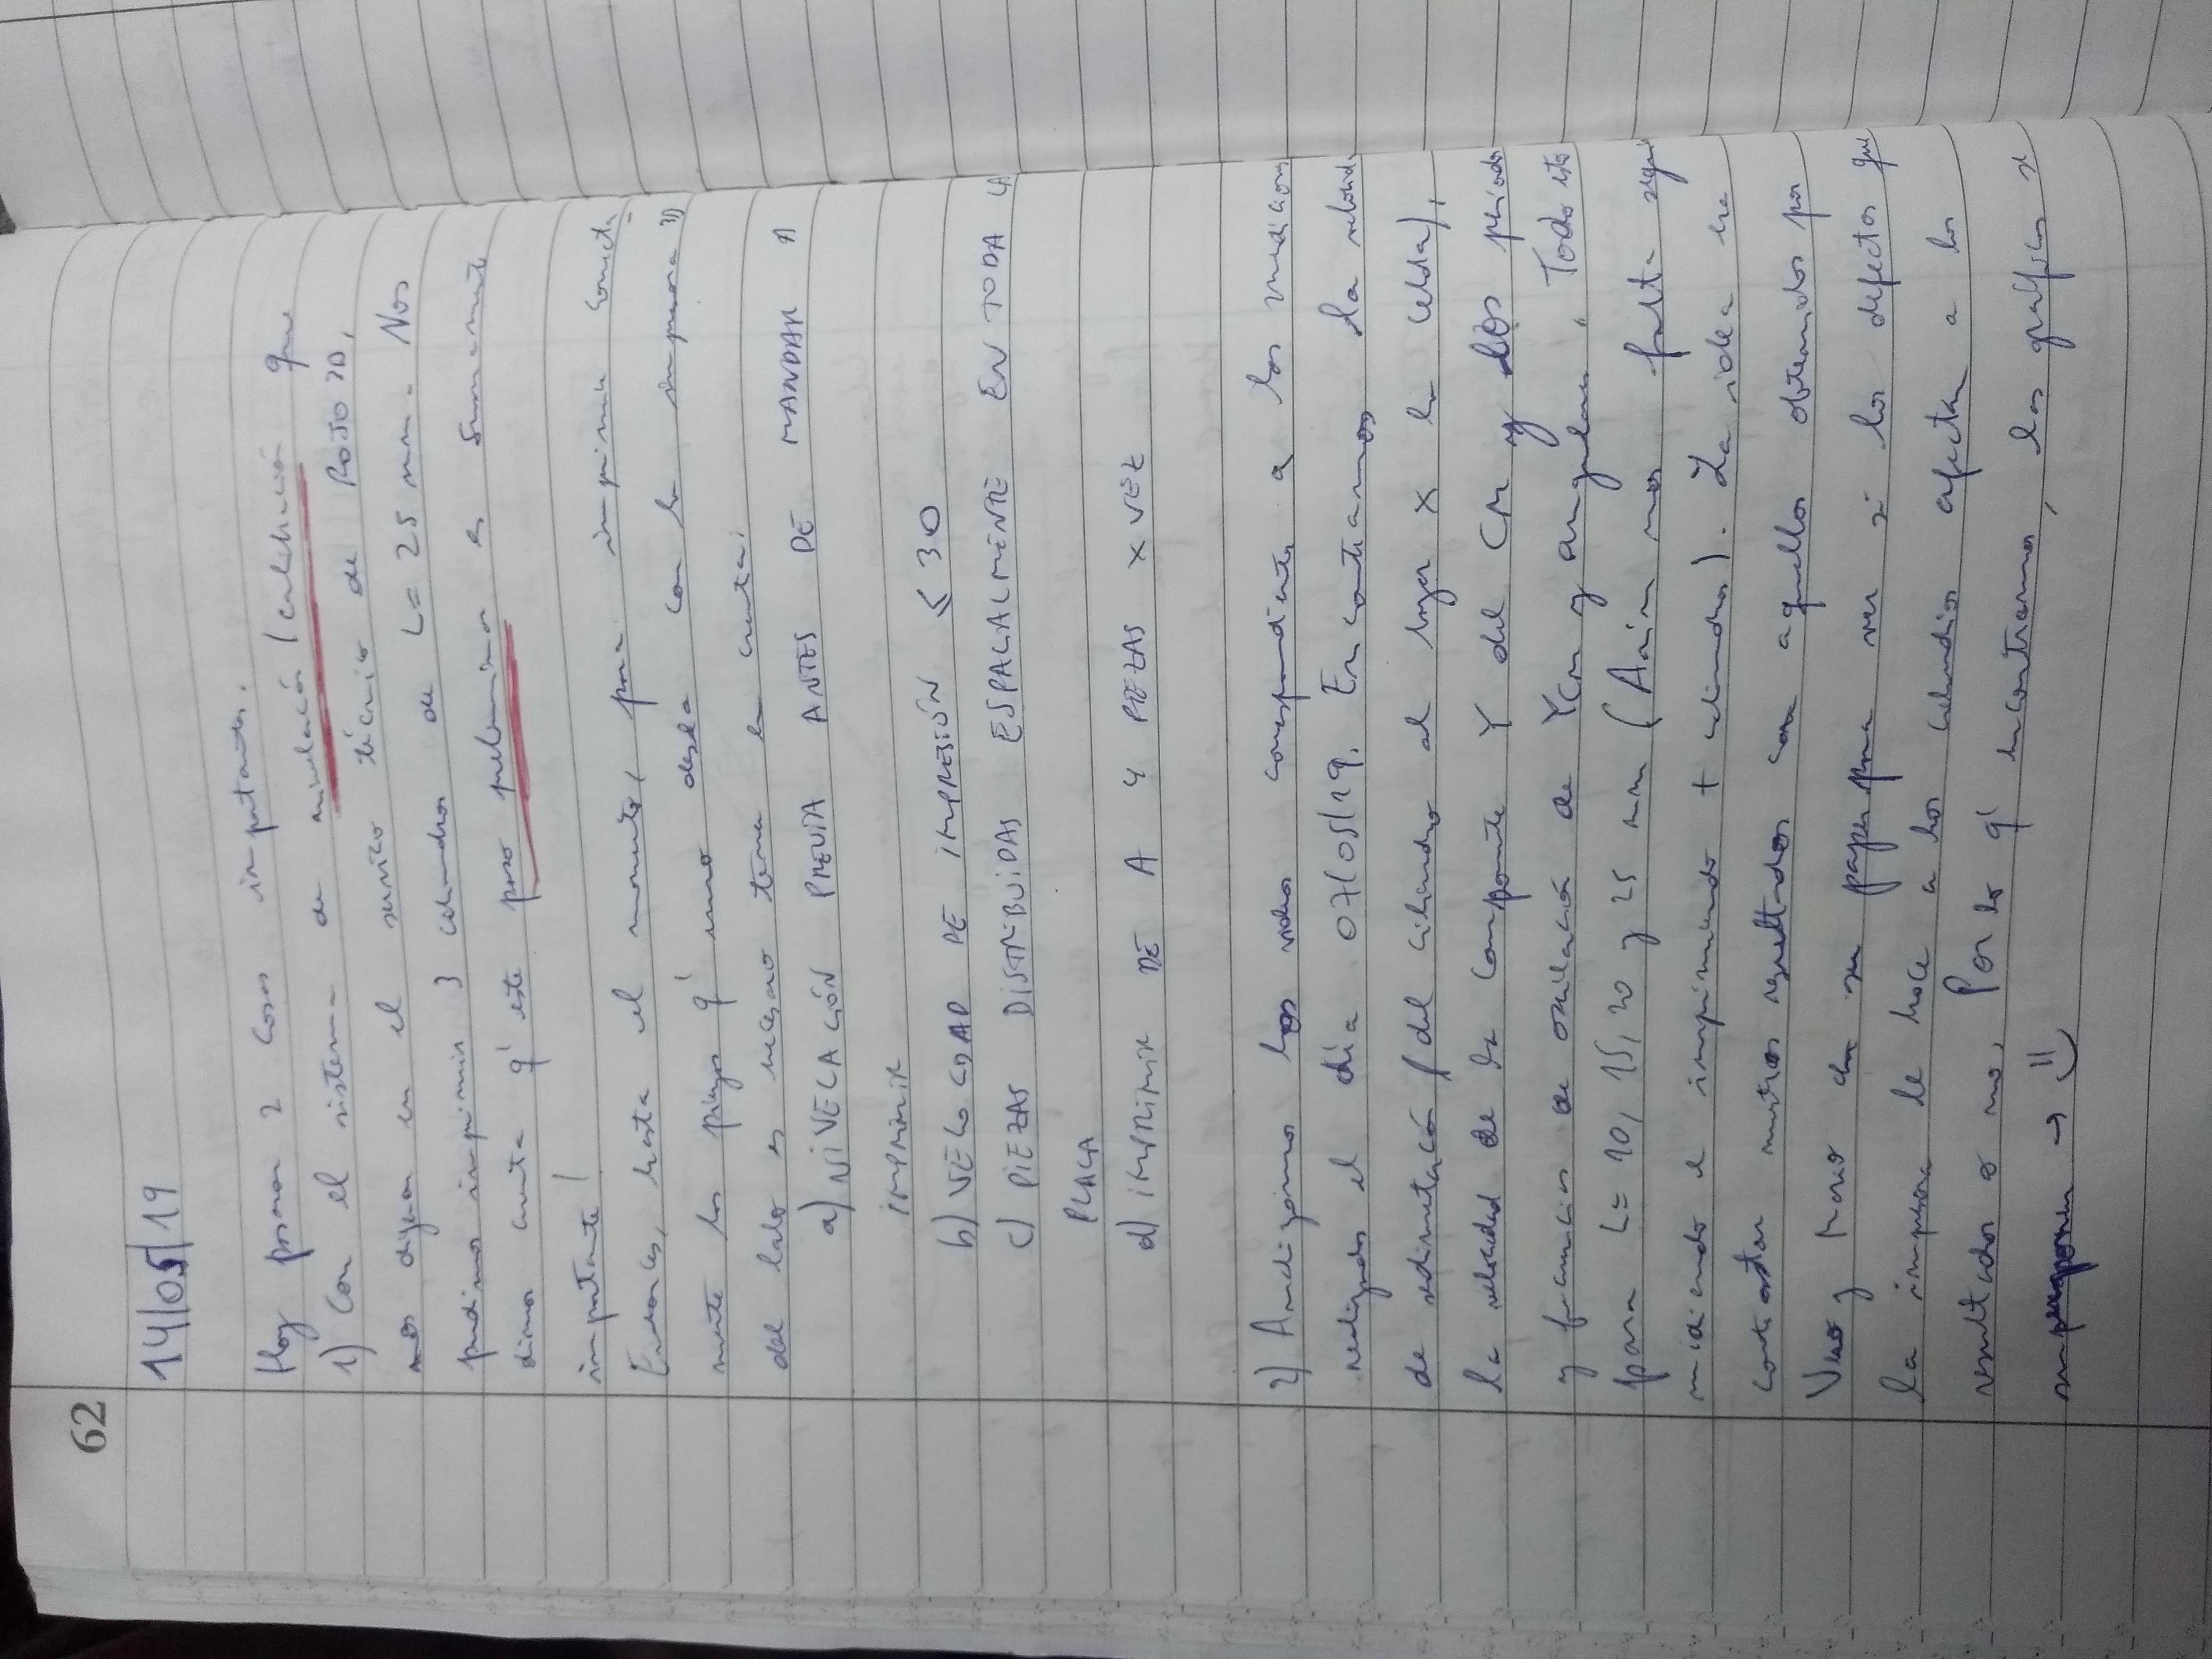 62
14/05/19
Hoy pasaron 2 cosas importantes.
1) Con el sistema de nivelación/calibración que
nos dijeron en el servicio técnico de ROJO 3D,
pudimos imprimir 3 cilindros de L= 25 mm. Nos
dimos cuenta q' este paso preliminar es sumamente
importante!
Entonces, hasta el momento, para imprimir correcta-
mente las piezas q' uno desea con la impresora 3D
del labo es necesario tener en cuenta:
a) NIVELACIÓN PREVIA ANTES DE MANDAR A
IMPRIMIR
b) VELOCIDAD DE IMPRESIÓN ≤ 30
c) PIEZAS DISTRIBUIDAS ESPACIALMENTE EN TODA LA
PLACA
d) IMPRIMIR DE A 4 PIEZAS X VEZ
2) Analizamos los videos correspondientes a las mediciones
realizadas el día 07/05/19. Encontramos la velocidad
de sedimetación (del cilindro al bajar x la celda),
la velocidad de la componente Y del CM y los períodos
y frecuencias de oscilación de YCM y angulares. Todo esto
para L= 10, 15, 20 y 25 mm (Aún nos falta seguir
midiendo e imprimiendo + cilindros). La idea era
contrastar nuestros resultados con aquellos obtenidos por
Vero y Mario en su paper para ver si los defectos que
la impresora le hace a los cilindros afectan a los
resultados o no. Por lo q' encontramos, los gráficos se
superponen → :)